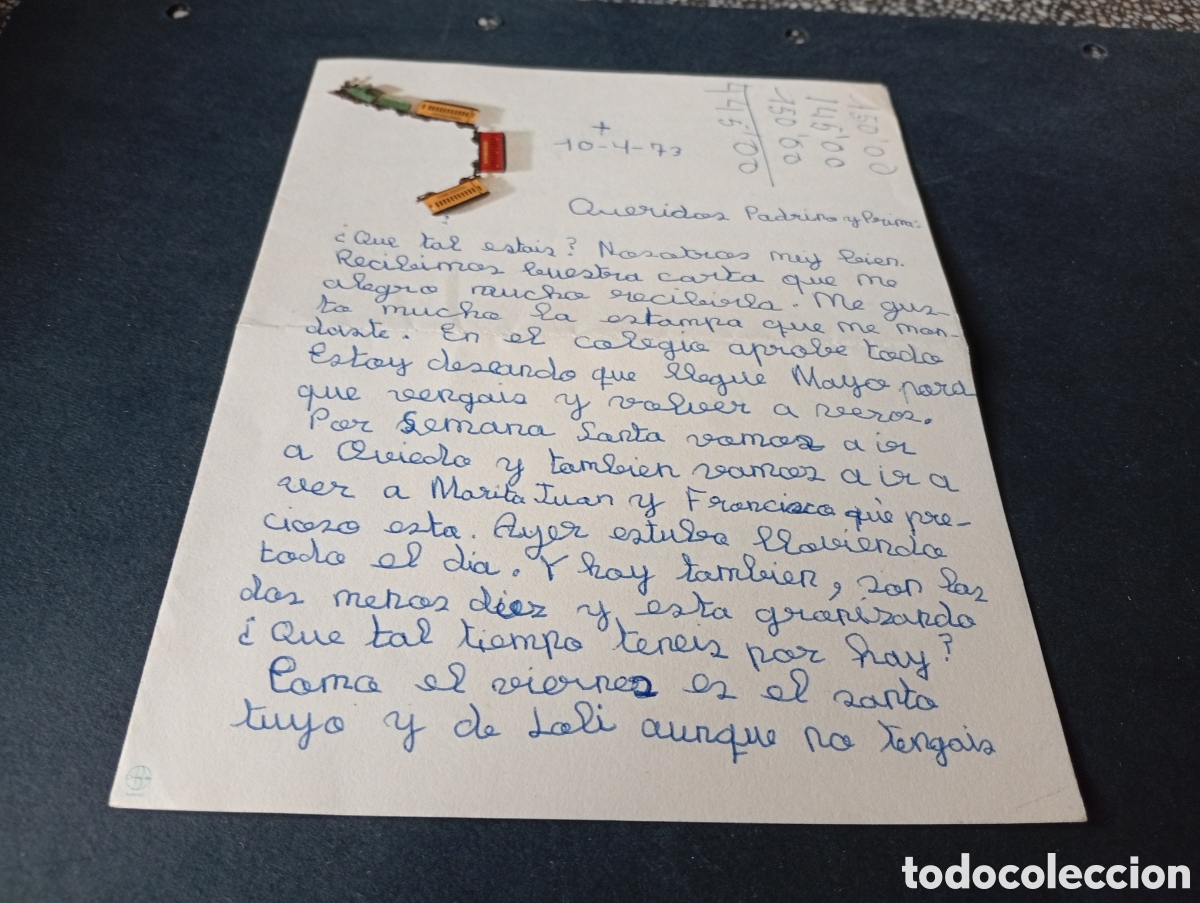 +
10-4-73
150'00
145'00
150'00
445'00
Queridos Padrino y Prima:
¿Que tal estais? Nosotros muy bien.
Recibimos buestra carta que me
alegro mucho recibirla. Me gus-
to mucho la estampa que me man-
daste. En el colegio aprobe todo
Estoy deseando que llegue Mayo para
que vengais y volver a veros.
Por Semana Santa vamos a ir
a Oviedo y tambien vamos a ir a
ver a Marita Juan y Francisco que pre-
cioso esta. Ayer estubo lloviendo
todo el dia. Y hoy tambien, son las
dos menos diez y esta granizando
¿Que tal tiempo teneis por hay?
Como el viernes es el santo
tuyo y de Loli aunque no tengais
todocoleccion